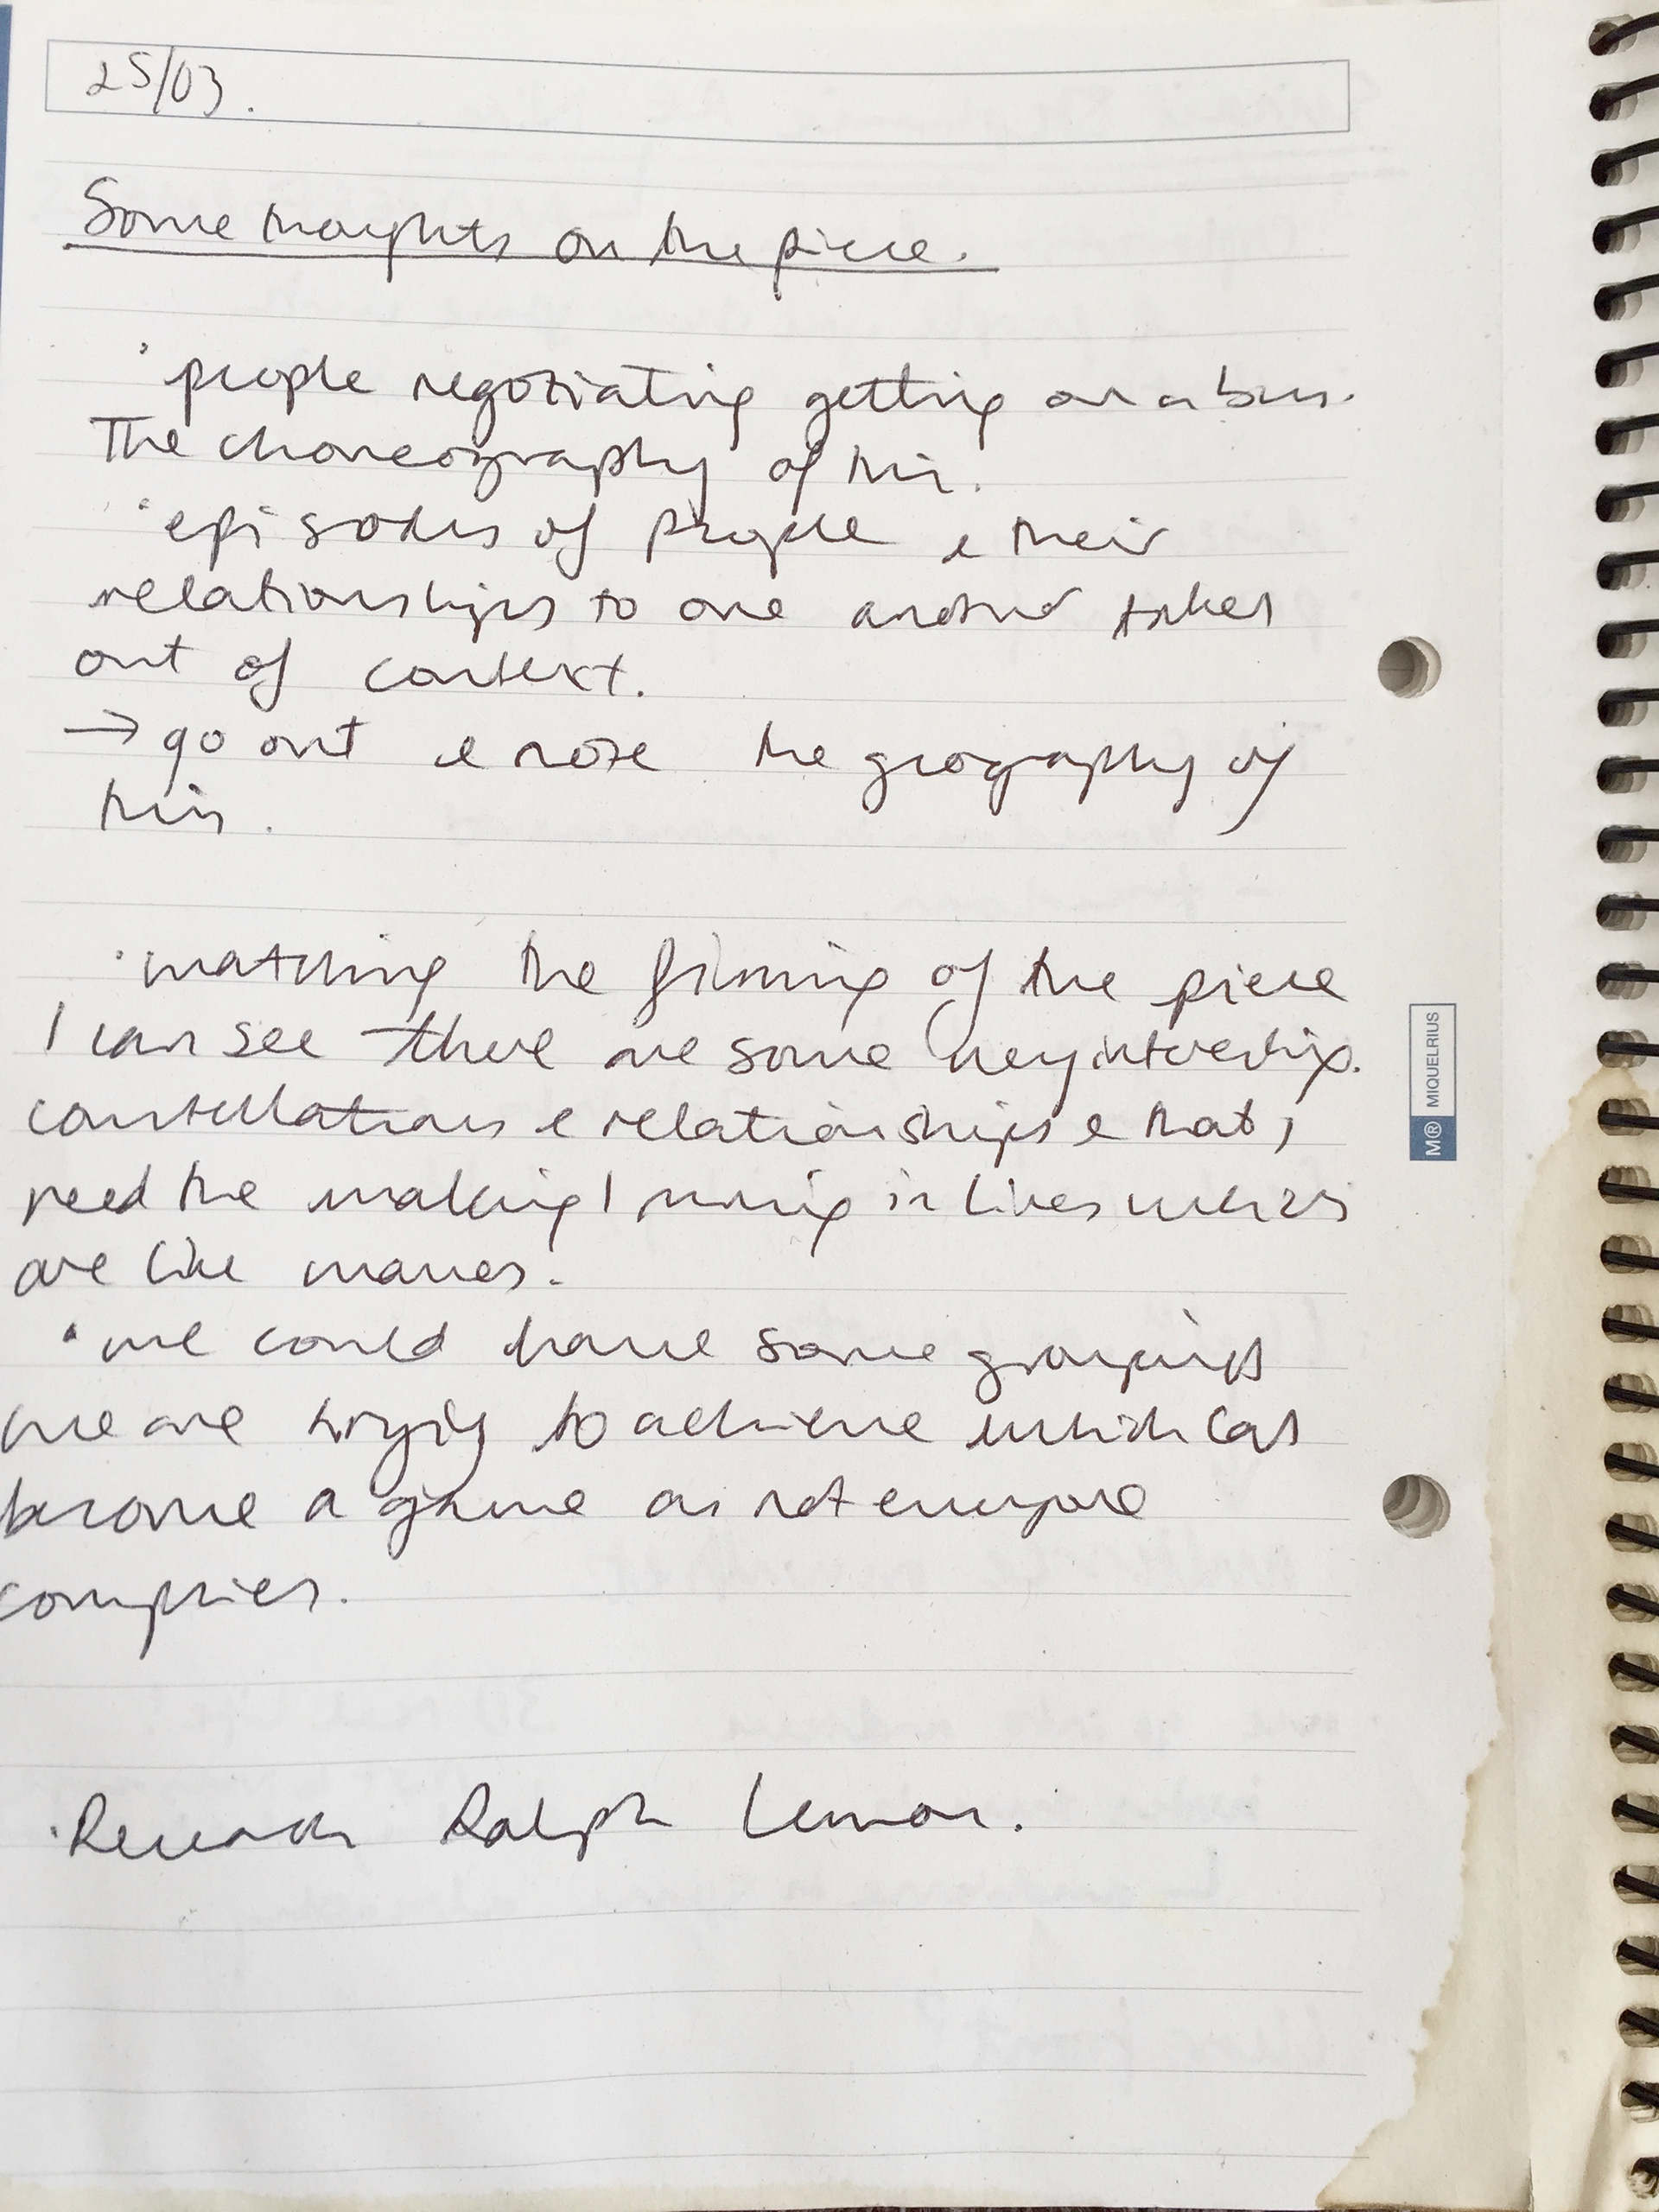 25/03.
Some thoughts on the piece.
· people negotiating getting on a bus.
The choreography of this.
· episodes of people & their
relationships to one another taken
out of context.
→ go out & note the geography of
this.
· watching the filming of the piece
I can see there are some very interesting.
constellations & relationships & that,
need the walking / running in lines which
are like waves.
· we could have some groupings
we are trying to achieve which can
become a game as not everyone
complies.
· Research Ralph Lemon.
M® MIQUELRIUS